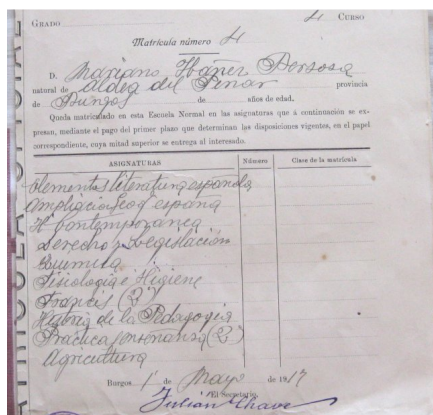 GRADO 4 CURSO
Matrícula número 4
D. Mariano Ibáñez
natural de Aldea del Pinar provincia
de Burgos de años de edad.
Queda matriculado en esta Escuela Normal en las asignaturas que á continuación se ex-
presan, mediante el pago del primer plazo que determinan las disposiciones vigentes, en el papel
correspondiente, cuya mitad superior se entrega al interesado.
ASIGNATURAS Número Clase de la matrícula
Elementos literatura española
Ampliación Geog españa
Hª Contemporanea
Derecho y Legislación
Quimica
Fisiología é Higiene
Francés (2º)
Historia de la Pedagogía
Practica enseñanza (2º)
Agricultura
Burgos 1º de Mayo de 1917
El Secretario,
Julián Chave